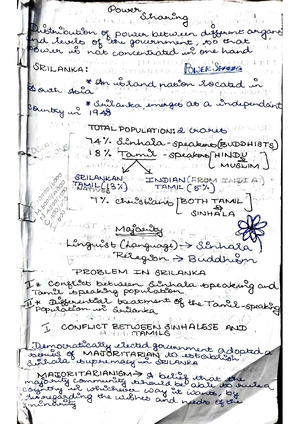 Power
Sharing
Distribution of power between different organs
and levels of the government, so that
power is not concentrated in one hand
SRILANKA:
POWER SHARING
* An island nation located in
South Asia
* Srilanka emerged as a independant
country in 1948
TOTAL POPULATION: 2 crores
74% Sinhala-speakers (BUDDHISTS)
18% Tamil - speakers [HINDU
MUSLIM
SRILANKAN INDIAN (FROM INDIA)
TAMIL (13%) TAMIL (5%)
NATIVES
7% christians [BOTH TAMIL
SINHALA
Majority
Linguist (Language) → Sinhala
Religion → Buddhism
PROBLEM IN SRILANKA
I * Conflict between Sinhala speaking and
Tamil speaking population
II * Differential treatment of the Tamil-speaking
Population in Srilanka
I CONFLICT BETWEEN SINHALESE AND
TAMILS
Democratically elected government adopted a
series of MAJORITARIAN to establish
Sinhala supremacy in SRILANKA
MAJORITARIANISM → A belief that the
majority community should be able to rule a
country in whichever way it wants, by
disregarding the wishes and needs of the
minority